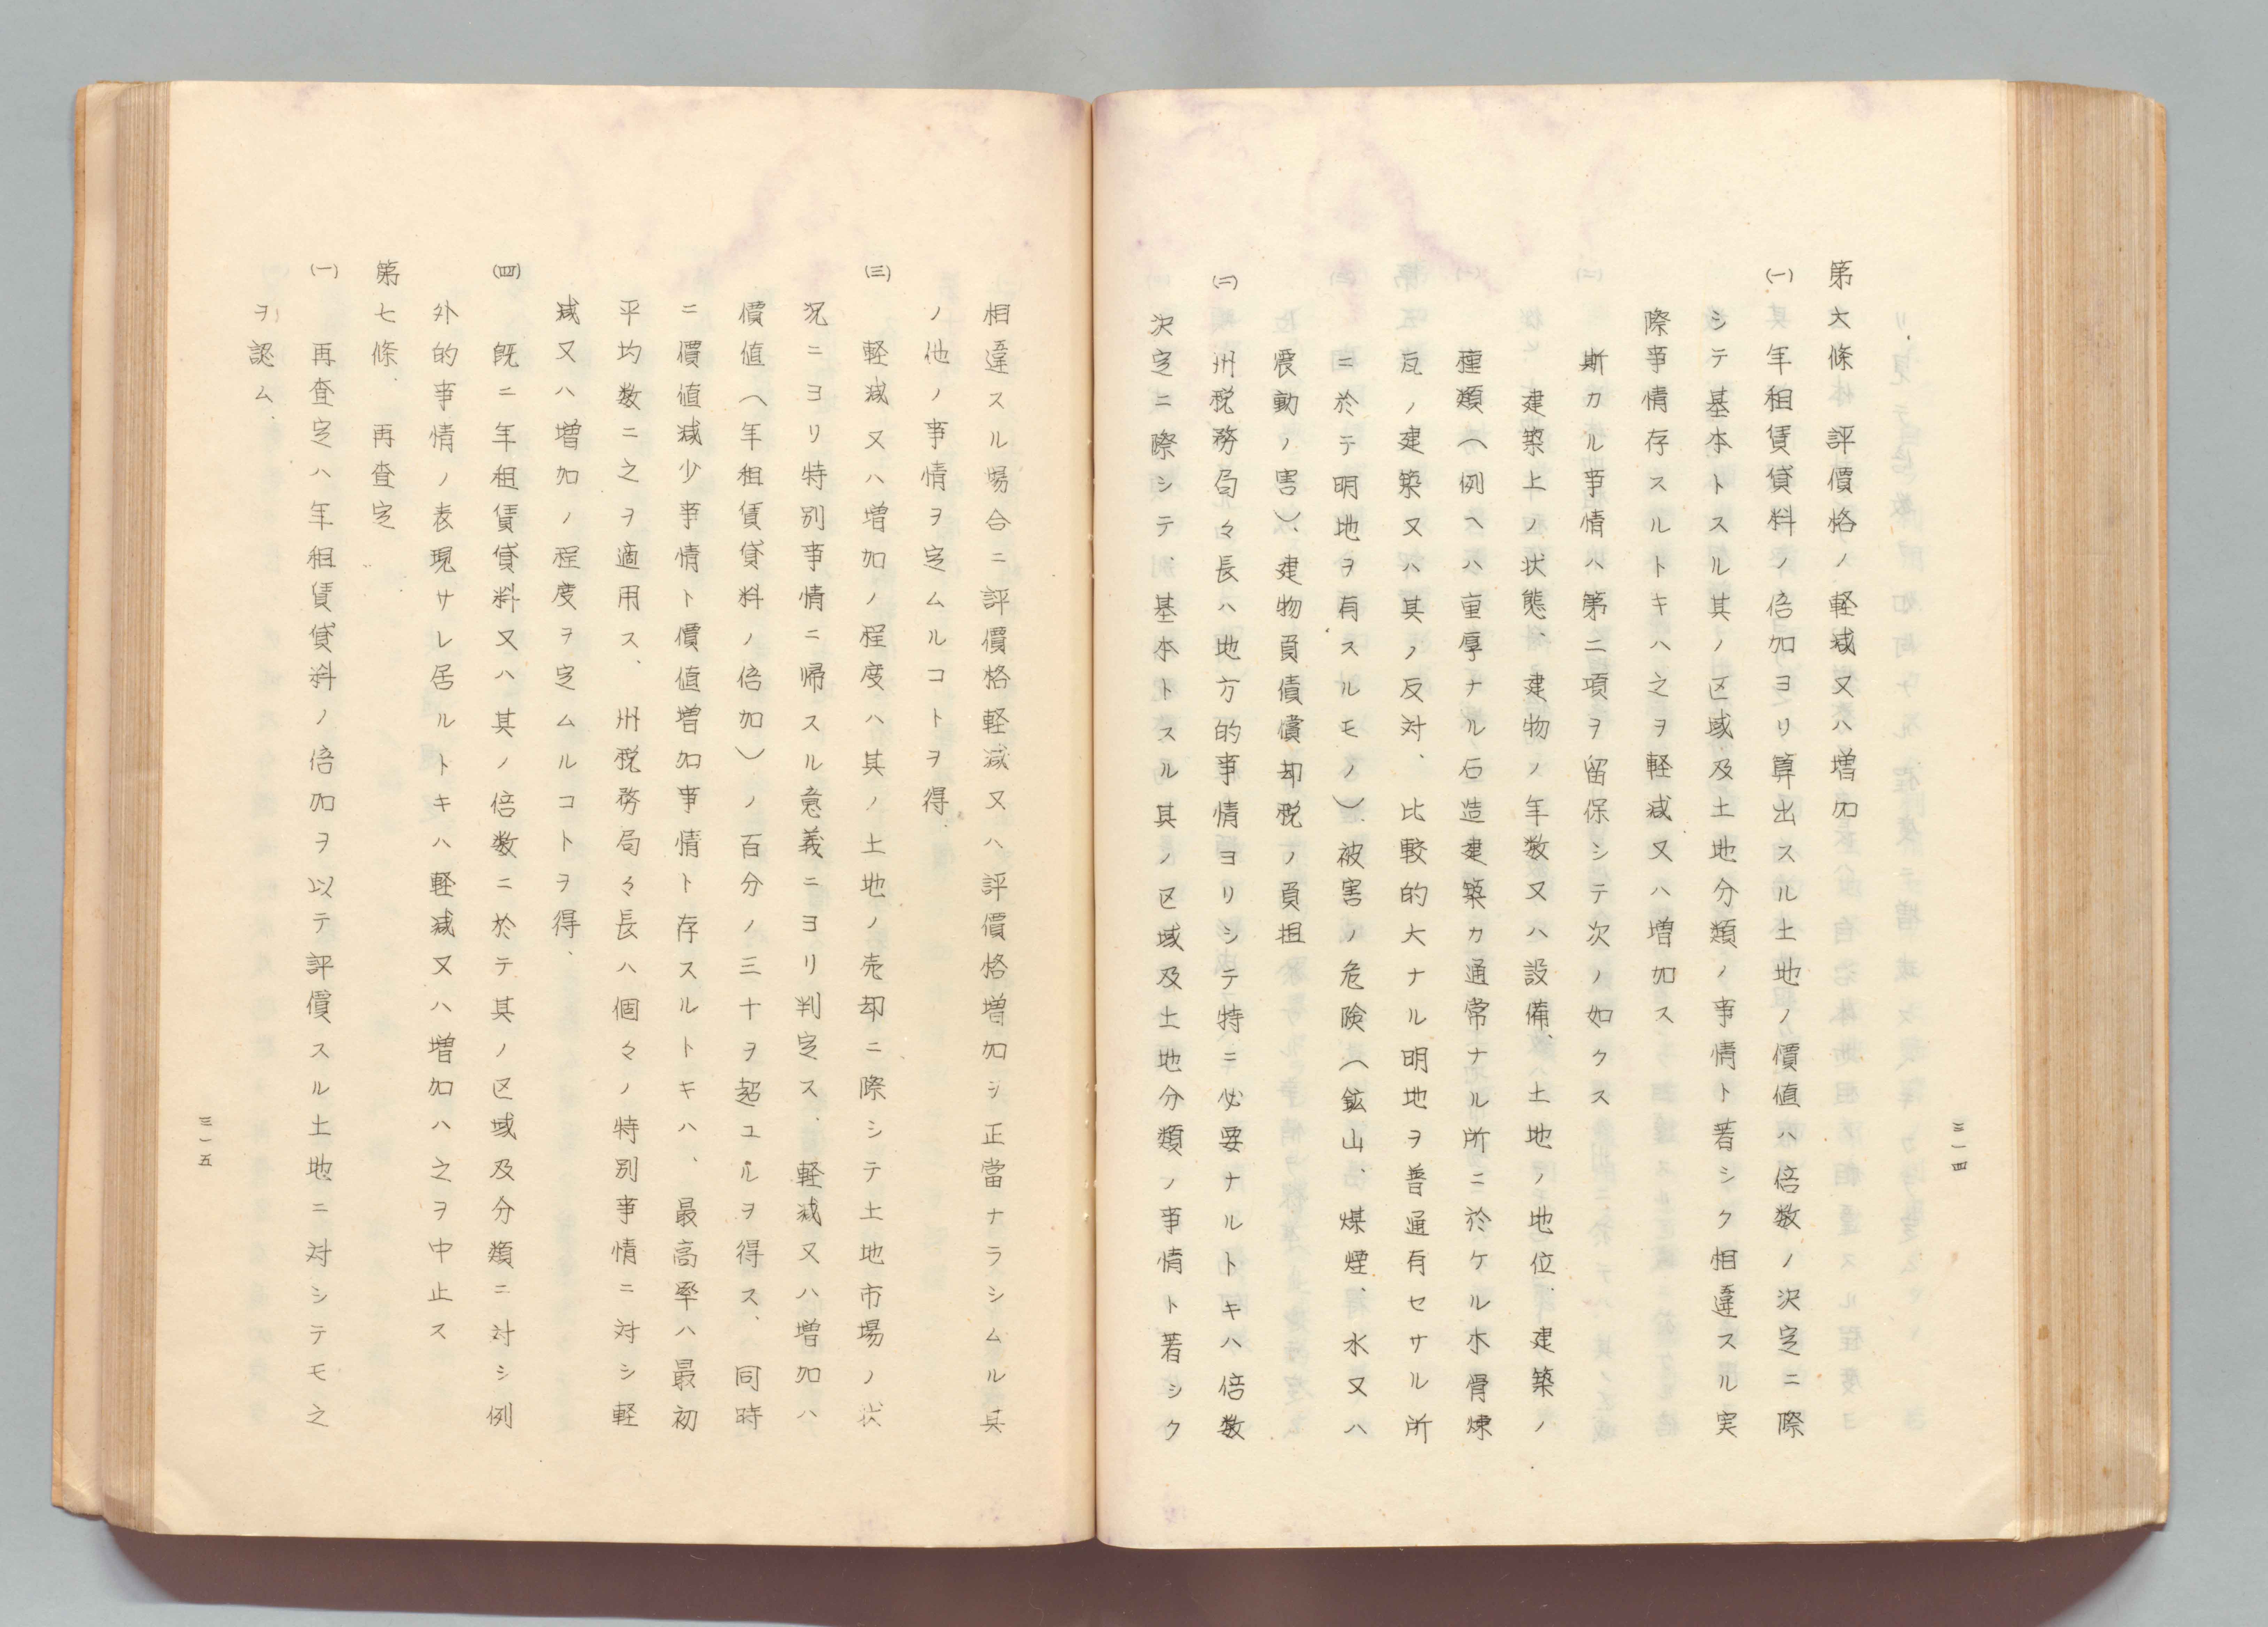 三一四
第六條　評價格ノ軽減又ハ増加
(一)　年租賃貸料ノ倍加ヨリ算出スル土地ノ價値ハ倍数ノ決定ニ際
シテ基本トスル其ノ区域及土地分類ノ事情ト著シク相違スル実
際事情存スルトキハ之ヲ軽減又ハ増加ス
斯カル事情ハ第二項ヲ留保シテ次ノ如クス
建築上ノ状態、建物ノ年数又ハ設備、土地ノ地位、建築ノ
種類（例ヘハ重厚ナル石造建築カ通常ナル所ニ於ケル木骨煉
瓦ノ建築又ハ其ノ反対、比較的大ナル明地ヲ普通有セサル所
ニ於テ明地ヲ有スルモノ）、被害ノ危険（鉱山、煤煙、水又ハ
震動ノ害）、建物負債償却税ノ負担
(二)　州税務局々長ハ地方的事情ヨリシテ特ニ必要ナルトキハ倍数
決定ニ際シテ、基本トスル其ノ区域及土地分類ノ事情ト著シク
相違スル場合ニ評價格軽減又ハ評價格増加ヲ正當ナラシムル其
ノ他ノ事情ヲ定ムルコトヲ得
(三)　軽減又ハ増加ノ程度ハ其ノ土地ノ売却ニ際シテ土地市場ノ状
況ニヨリ特別事情ニ帰スル意義ニヨリ判定ス、軽減又ハ増加ハ
價値（年租賃貸料ノ倍加）ノ百分ノ三十ヲ超ユルヲ得ス、同時
ニ價値減少事情ト價値増加事情ト存スルトキハ、最高率ハ最初
平均数ニ之ヲ適用ス、州税務局々長ハ個々ノ特別事情ニ対シ軽
減又ハ増加ノ程度ヲ定ムルコトヲ得、
(四)　既ニ年租賃貸料又ハ其ノ倍数ニ於テ其ノ区域及分類ニ対シ例
外的事情ノ表現サレ居ルトキハ軽減又ハ増加ハ之ヲ中止ス
第七條、再査定
(一)　再査定ハ年租賃貸料ノ倍加ヲ以テ評價スル土地ニ対シテモ之
ヲ認ム、
三一五